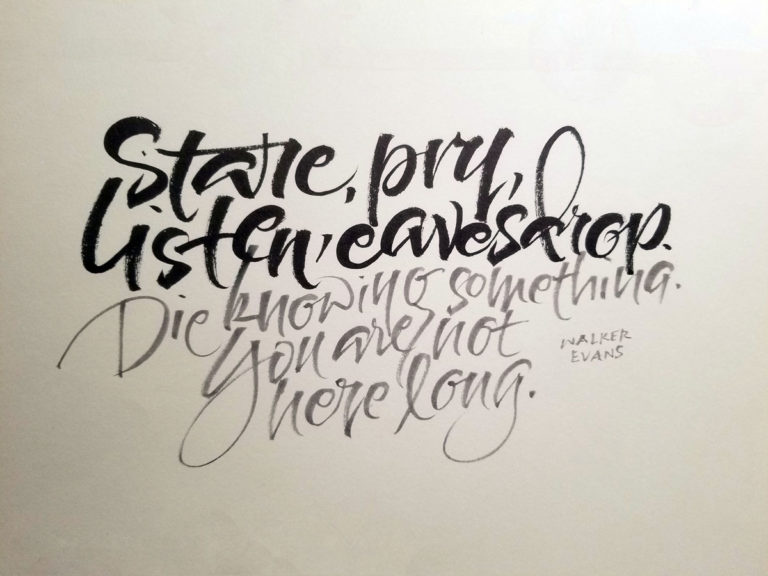 Stare, pry,
listen, eavesdrop.
Die knowing something.
You are not
here long.
WALKER
EVANS